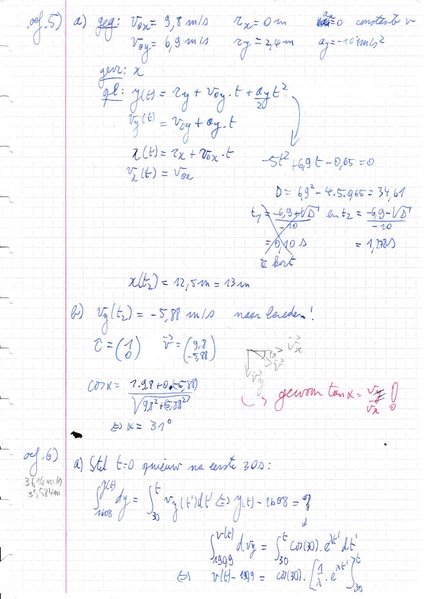 oef. 5) a) geg: v₀ₓ = 9,8 m/s rₓ = 0 m aₓ = 0 constante v
v₀y = 6,9 m/s ry = 2,4 m ay = -10 m/s²
gevr: x
opl: y(t) = ry + v₀y . t + ay t²/2
vy(t) = v₀y + ay . t
x(t) = rₓ + v₀ₓ . t
vₓ(t) = v₀ₓ
-5t² + 6,9t - 0,65 = 0
D = 6,9² - 4.5.0,65 = 34,61
t₁ = (-6,9 + √D)/-10 en t₂ = (-6,9 - √D)/-10
= 0,10 s = 1,28 s
te kort
x(t₂) = 12,5 m = 13 m
b) vy(t₂) = -5,88 m/s naar beneden!
v = (9,8 -5,88)
cos α = (1.9,8 + 0.(-5,88))/√(9,8² + 5,88²)
⇔ α = 31°
gewoon tan α = vy/vₓ !
oef. 6) a) Stel t=0 opnieuw na eerste 30s:
∫ dy = ∫₃₀ᵗ vy(t')dt' ⇔ y(t) - 1608 = ?
∫ dvy = ∫₃₀ᵗ cos(30) . e^λt' dt'
⇔ v(t) - 1909 = cos(30) . [1/λ . e^λt']₃₀ᵗ